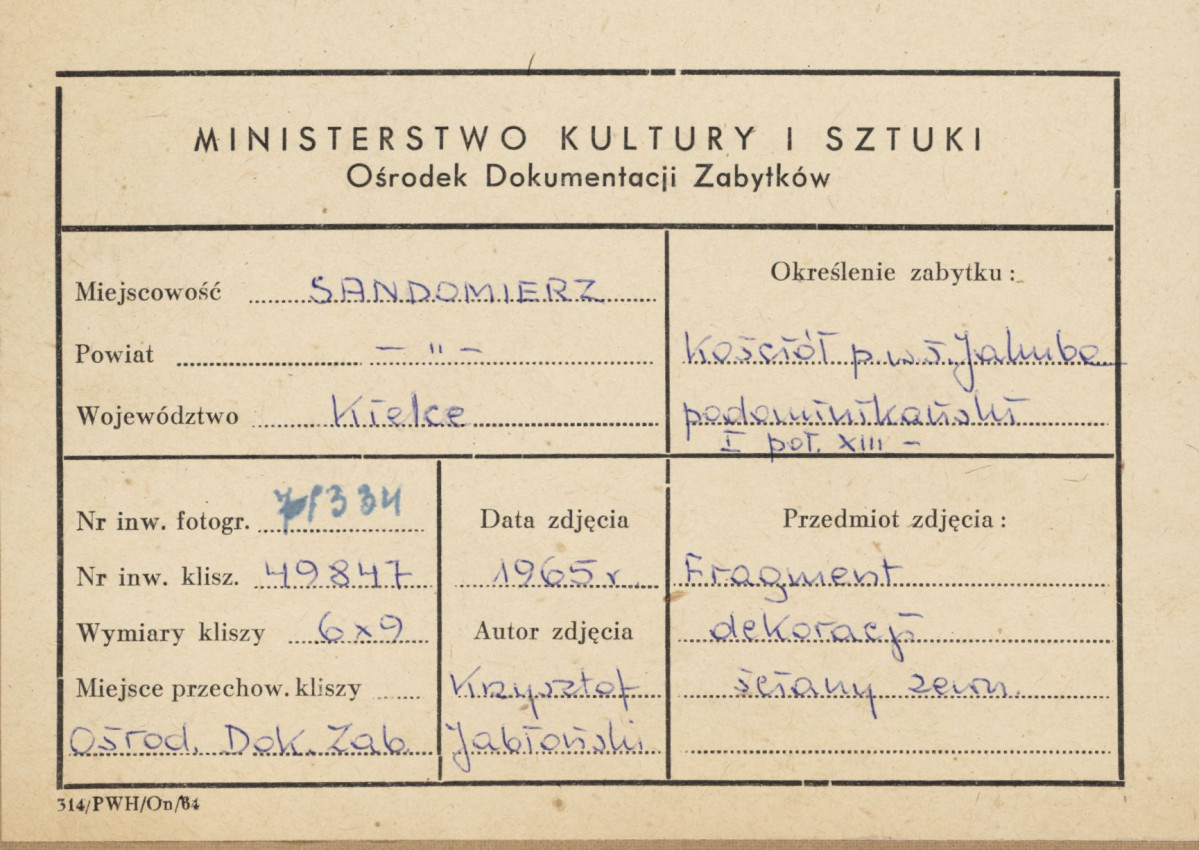 MINISTERSTWO KULTURY I SZTUKI
Ośrodek Dokumentacji Zabytków
Miejscowość SANDOMIERZ
Powiat — " —
Województwo Kielce
Określenie zabytku:
Kościół p.w.ś. Jakuba
podominikański
I poł. XIII —
Nr inw. fotogr. 334
Nr inw. klisz. 49847
Wymiary kliszy 6x9
Miejsce przechow. kliszy
Ośrod. Dok. Zab.
Data zdjęcia
1965 r.
Autor zdjęcia
Krzysztof
Jabłoński
Przedmiot zdjęcia:
Fragment
dekoracji
ściany zewn.
314/PWH/On/64